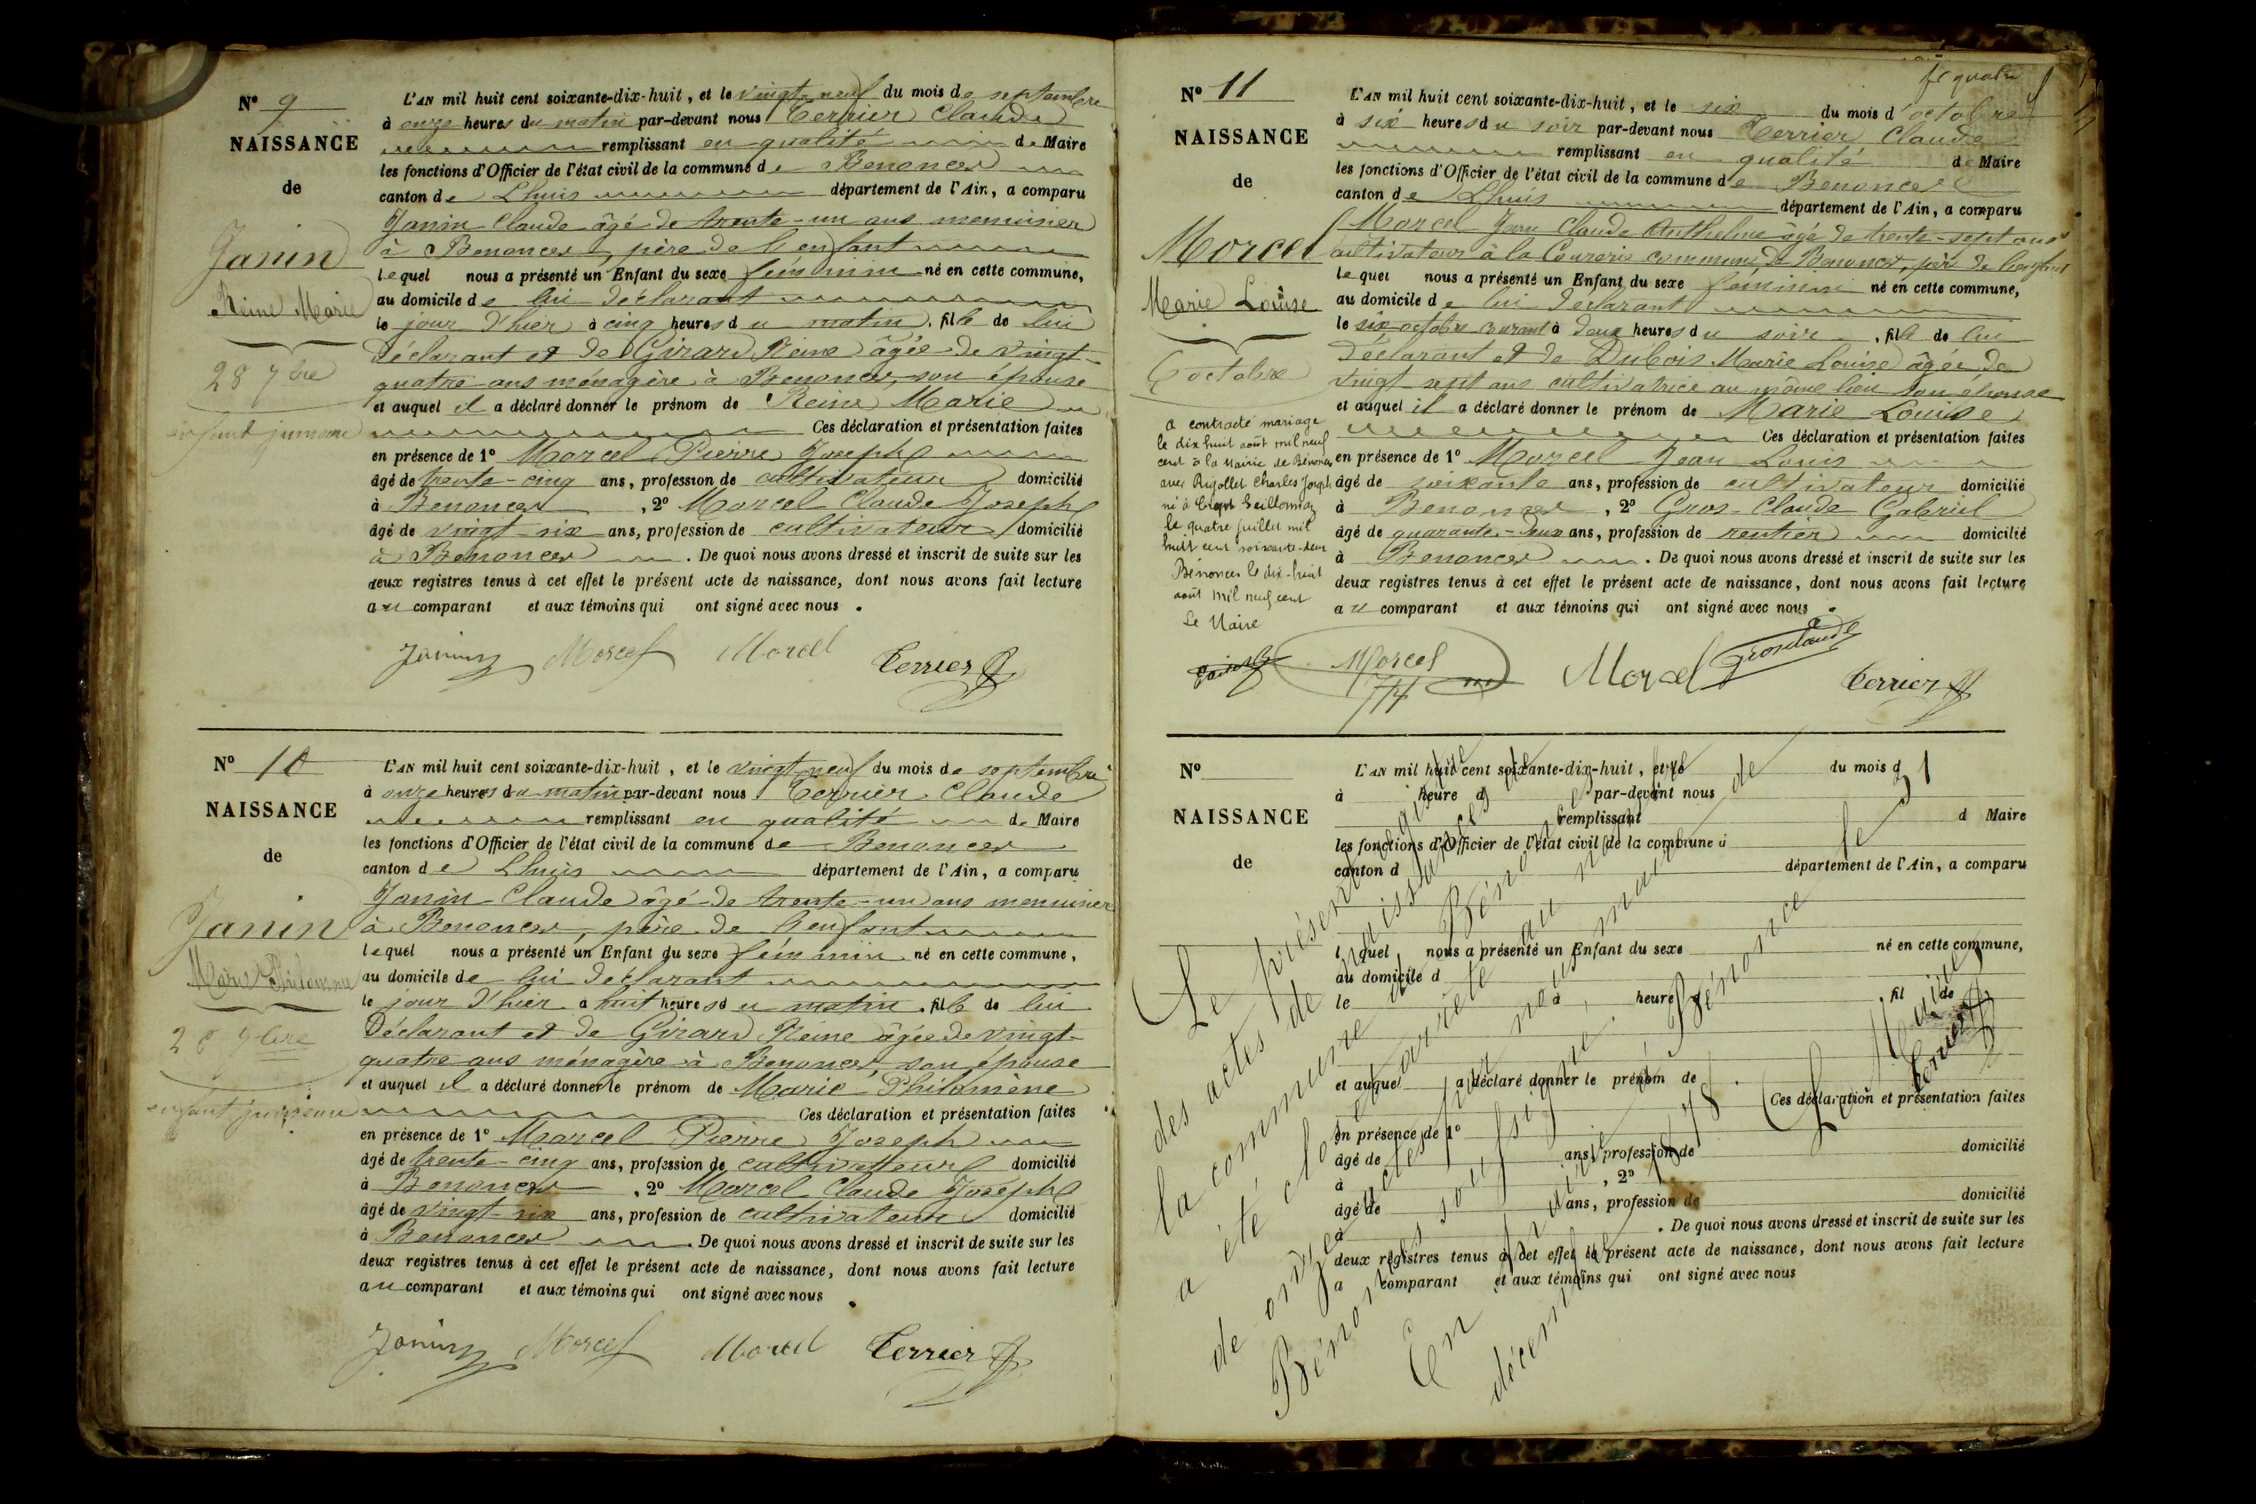 N° 9
NAISSANCE
de
Janin
Reine Marie
28 7bre
enfant jumeau
L'AN mil huit cent soixante-dix-huit, et le vingt-neuf du mois de septembre
à onze heures du matin par-devant nous Terrier Claude
remplissant en qualité de Maire
les fonctions d'Officier de l'état civil de la commune de Benonces
canton de Lhuis département de l'Ain, a comparu
Janin Claude âgé de trente-un ans menuisier
à Benonces, père de l'enfant
lequel nous a présenté un Enfant du sexe féminin né en cette commune,
au domicile de lui déclarant
le jour d'hier à cinq heures du matin, fille de lui
déclarant et de Girard Reine âgée de vingt-
quatre ans ménagère à Benonces, son épouse
et auquel il a déclaré donner le prénom de Reine Marie
Ces déclaration et présentation faites
en présence de 1° Marcel Pierre Joseph
âgé de trente-cinq ans, profession de cultivateur domicilié
à Benonces, 2° Marcel Claude Joseph
âgé de vingt-six ans, profession de cultivateur domicilié
à Benonces. De quoi nous avons dressé et inscrit de suite sur les
deux registres tenus à cet effet le présent acte de naissance, dont nous avons fait lecture
au comparant et aux témoins qui ont signé avec nous.
Janin Morcel Morcel Terrier
N° 10
NAISSANCE
de
Janin
Marie Philomène
28 7bre
enfant jumeau
L'AN mil huit cent soixante-dix-huit, et le vingt-neuf du mois de septembre
à onze heures du matin par-devant nous Terrier Claude
remplissant en qualité de Maire
les fonctions d'Officier de l'état civil de la commune de Benonces
canton de Lhuis département de l'Ain, a comparu
Janin Claude âgé de trente-un ans menuisier
à Benonces, père de l'enfant
lequel nous a présenté un Enfant du sexe féminin né en cette commune,
au domicile de lui déclarant
le jour d'hier à huit heures du matin, fille de lui
déclarant et de Girard Reine âgée de vingt-
quatre ans ménagère à Benonces, son épouse
et auquel il a déclaré donner le prénom de Marie Philomène
Ces déclaration et présentation faites
en présence de 1° Marcel Pierre Joseph
âgé de trente-cinq ans, profession de cultivateur domicilié
à Benonces, 2° Marcel Claude Joseph
âgé de vingt-six ans, profession de cultivateur domicilié
à Benonces. De quoi nous avons dressé et inscrit de suite sur les
deux registres tenus à cet effet le présent acte de naissance, dont nous avons fait lecture
au comparant et aux témoins qui ont signé avec nous.
Janin Morcel Morcel Terrier
N° 11
NAISSANCE
de
Morcel
Marie Louise
6 octobre
a contracté mariage
le dix huit août mil neuf
cent à la Mairie de Bénonces
avec Rigollet Charles Joseph
né à
le quatre juillet mil
huit cent soixante-deux
Bénonces le dix-huit
août mil neuf cent
Le Maire
L'AN mil huit cent soixante-dix-huit, et le six du mois d'octobre
à six heures du soir par-devant nous Terrier Claude
remplissant en qualité de Maire
les fonctions d'Officier de l'état civil de la commune de Benonces
canton de Lhuis département de l'Ain, a comparu
Morcel Jean Claude Anthelme âgé de trente-sept ans
cultivateur à la Courerie commune de Benonces, père de l'enfant
lequel nous a présenté un Enfant du sexe féminin né en cette commune,
au domicile de lui déclarant
le six octobre courant à deux heures du soir, fille de lui
déclarant et de Dubois Marie Louise âgée de
vingt-sept ans cultivatrice au même lieu son épouse
et auquel il a déclaré donner le prénom de Marie Louise
Ces déclaration et présentation faites
en présence de 1° Marcel Jean Louis
âgé de soixante ans, profession de cultivateur domicilié
à Benonces, 2° Gros-Claude Gabriel
âgé de quarante-deux ans, profession de rentier domicilié
à Benonces. De quoi nous avons dressé et inscrit de suite sur les
deux registres tenus à cet effet le présent acte de naissance, dont nous avons fait lecture
au comparant et aux témoins qui ont signé avec nous.
Morcel Morcel Grosclaude Terrier
N°
NAISSANCE
de
L'AN mil huit cent soixante-dix-huit, et le du mois d
à heure d par-devant nous
remplissant d Maire
les fonctions d'Officier de l'état civil de la commune d
canton d département de l'Ain, a comparu
l quel nous a présenté un Enfant du sexe né en cette commune,
au domicile d
le à heure fil de
et auquel a déclaré donner le prénom de
Ces déclaration et présentation faites
en présence de 1°
âgé de ans, profession de domicilié
à , 2°
âgé de ans, profession de domicilié
à . De quoi nous avons dressé et inscrit de suite sur les
deux registres tenus à cet effet le présent acte de naissance, dont nous avons fait lecture
a comparant et aux témoins qui ont signé avec nous
Le présent
des actes de naissances de
la commune de Bénonces
a été clos et arrêté au nombre de
de onze actes par nous maire de
Bénonces soussigné.
En Mairie à Bénonces le 31
décembre 1878.
Le Maire
Terrier